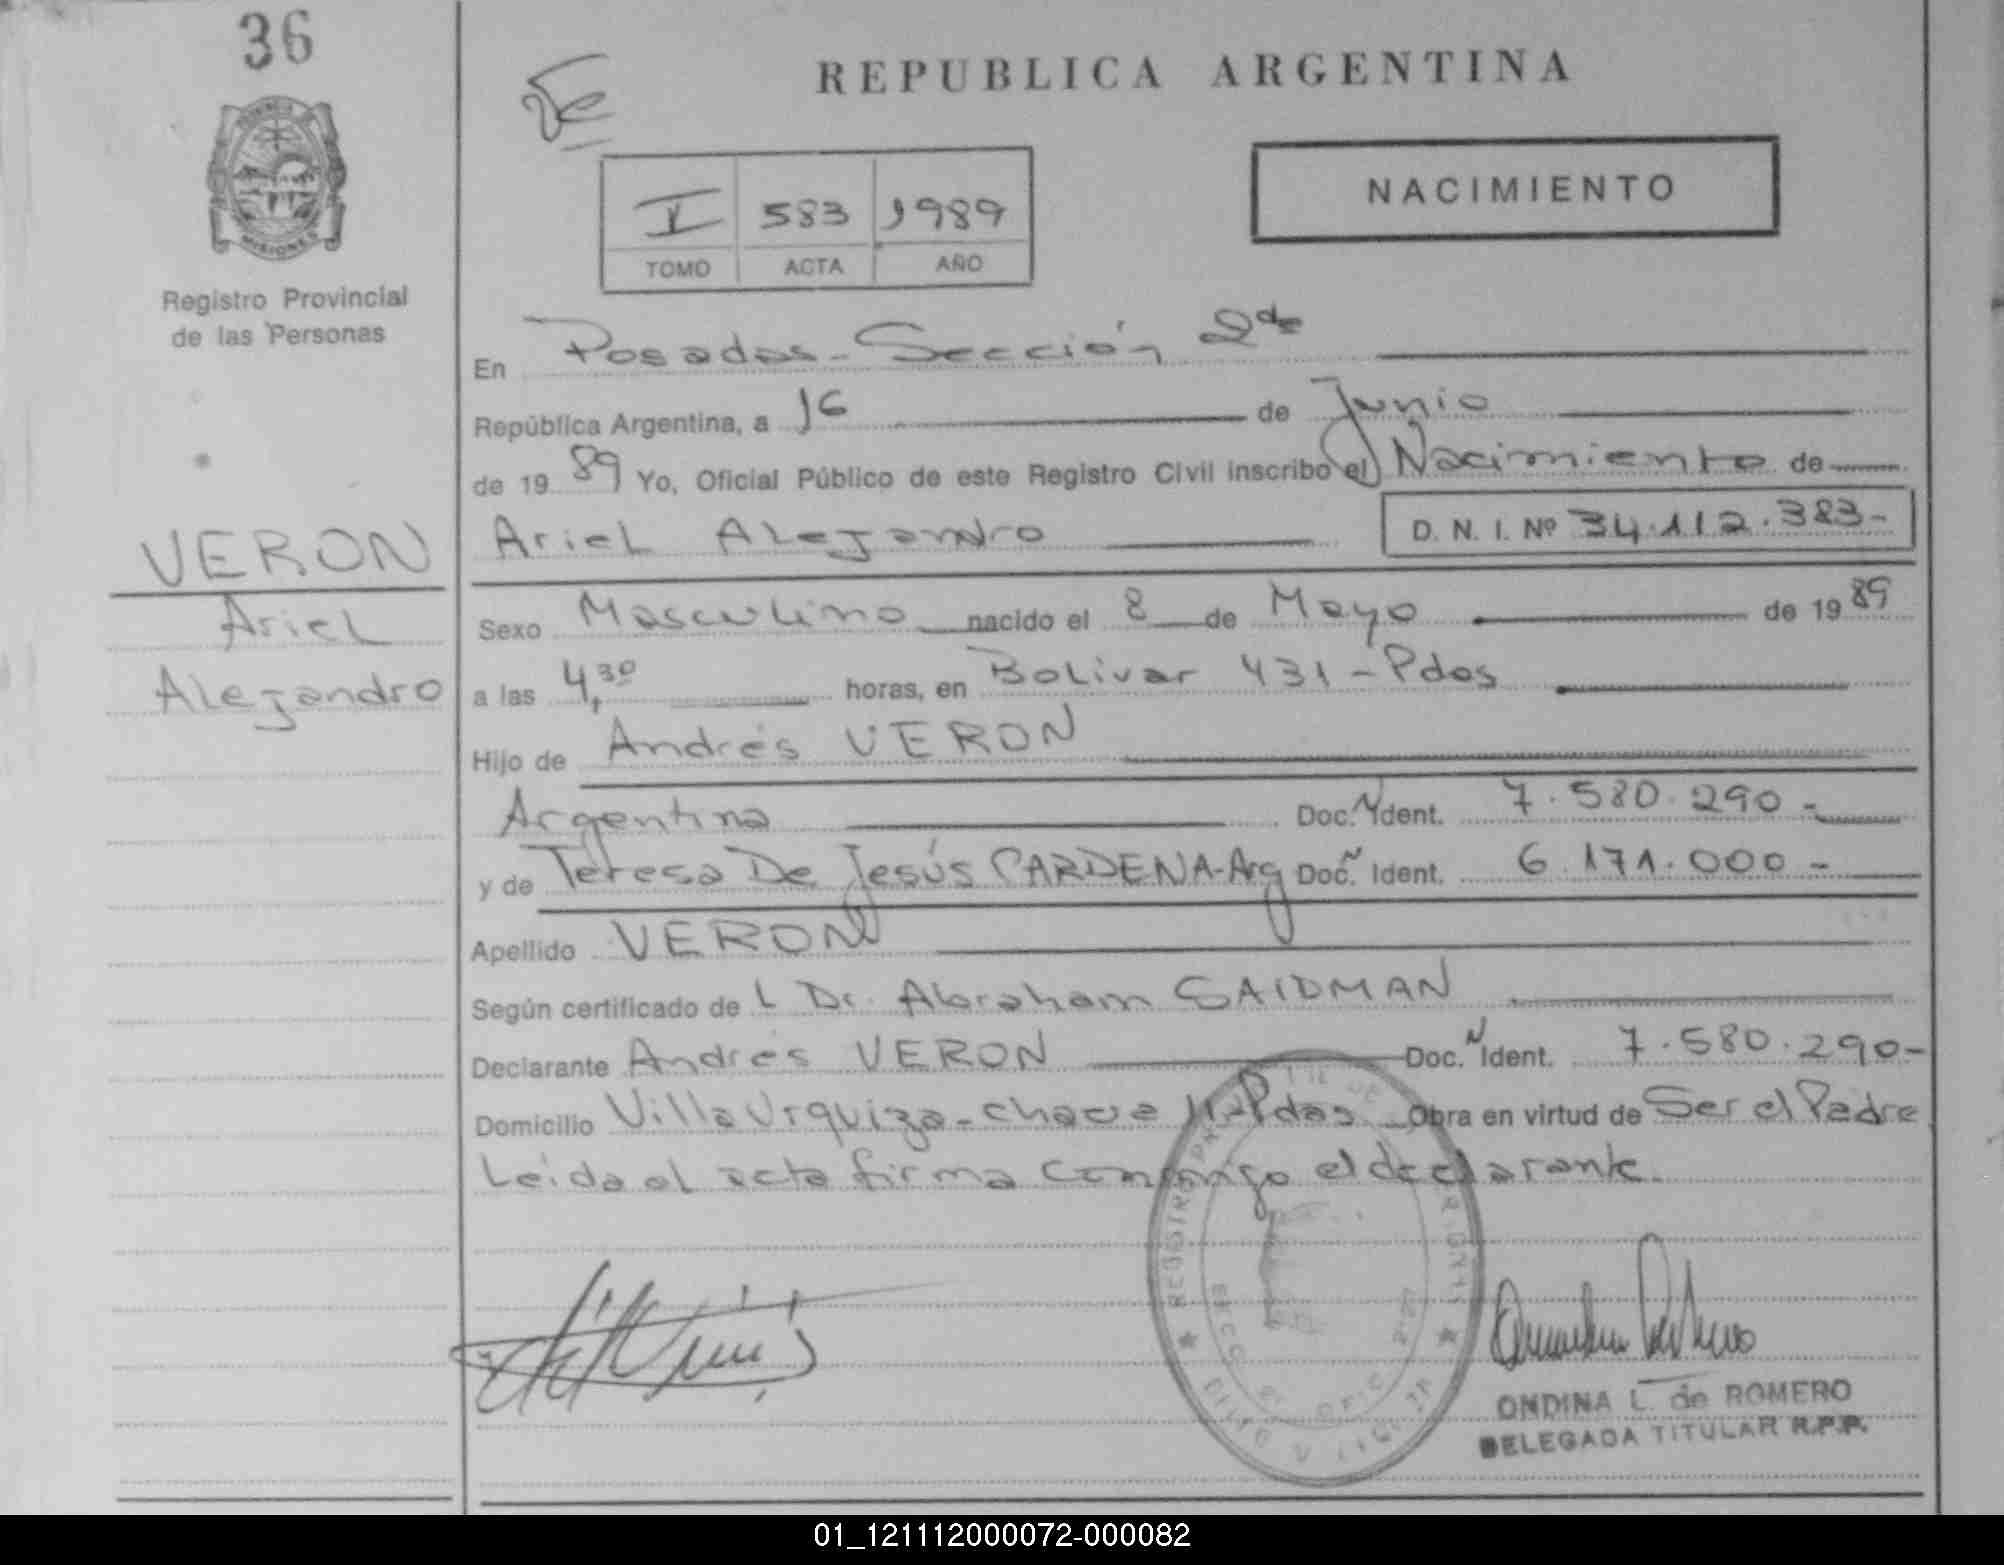 36
REPUBLICA ARGENTINA
NACIMIENTO
I 583 1989
TOMO ACTA AÑO
MISIONES
Registro Provincial
de las Personas
En Posadas - Sección 2da
República Argentina, a 16 de Junio
de 1989 Yo, Oficial Público de este Registro Civil inscribo el Nacimiento de
Ariel Alejandro D. N. I. Nº 34.112.383-
VERON
Ariel
Alejandro
Sexo Masculino nacido el 8 de Mayo de 1989
a las 4,30 horas, en Bolivar 431 - Pdas
Hijo de Andrés VERON
Argentina Doc. N Ident. 7.580.290-
y de Teresa De Jesús CARDENA-Arg Doc. N Ident. 6.171.000-
Apellido VERON
Según certificado de L Dr. Abraham SAIDMAN
Declarante Andrés VERON Doc. N Ident. 7.580.290-
Domicilio Villa Urquiza - Pdas Obra en virtud de Ser el Padre
Leida el acta firma conmigo el declarante.
ONDINA L. de ROMERO
DELEGADA TITULAR R.P.P.
01_121112000072-000082